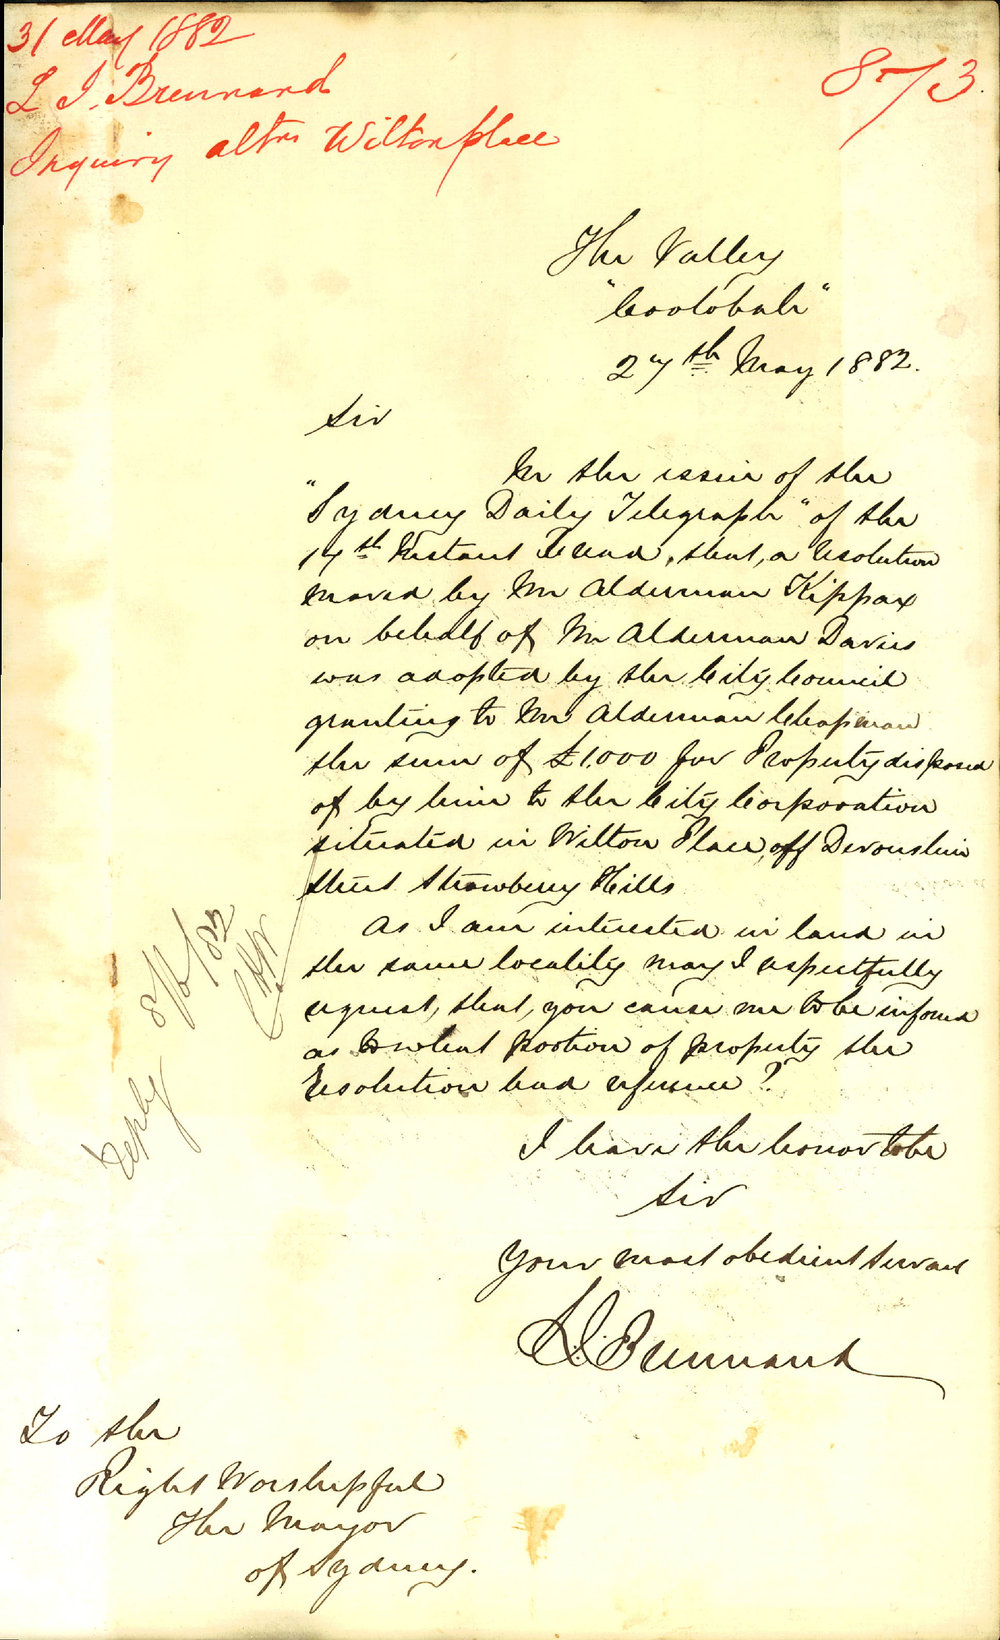 31 May 1882
L I. Brennand
Inquiry altns Wilton place
873.
The Valley
"Coolabah"
27th May 1882.
Sir
In the issue of the
"Sydney Daily Telegraph" of the
17th Instant I read, that, a resolution
moved by Mr Alderman Kippax
on behalf of Mr Alderman Davies
was adopted by the City Council
granting to Mr Alderman Chapman
the sum of £1.000 for Property disposed
of by him to the City Corporation
situated in Wilton Place off Devonshire
Street Strawberry Hills
As I am interested in land in
the same locality may I respectfully
request, that, you cause me to be informed
as to what portion of property the
Resolution had reference?
I have the honor to be
Sir
Your most obedient Servant
L. I. Brennand
Reply 8/6/1882
To the
Right Worshipful
The Mayor
of Sydney.